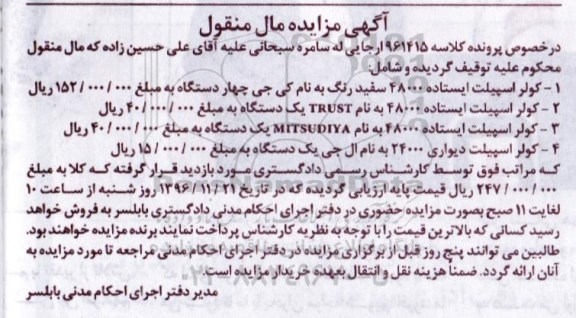 آگهی مزایده مال منقول
در خصوص پرونده کلاسه ۹۶۱۴۱۵ ارجایی له سامره سبحانی علیه آقای علی حسین زاده که مال منقول
محکوم علیه توقیف گردیده و شامل:
۱ - کولر اسپیلت ایستاده ۴۸۰۰۰ سفید رنگ به نام کی جی چهار دستگاه به مبلغ ۱۵۲/۰۰۰/۰۰۰ ریال
۲ - کولر اسپیلت ایستاده ۴۸۰۰۰ به نام TRUST یک دستگاه به مبلغ ۴۰/۰۰۰/۰۰۰ ریال
۳ - کولر اسپیلت ایستاده ۴۸۰۰۰ به نام MITSUDIYA یک دستگاه به مبلغ ۴۰/۰۰۰/۰۰۰ ریال
۴ - کولر اسپیلت دیواری ۲۴۰۰۰ به نام ال جی یک دستگاه به مبلغ ۱۵/۰۰۰/۰۰۰ ریال
که مراتب فوق توسط کارشناس رسمی دادگستری مورد بازدید قرار گرفته که کلا به مبلغ
۲۴۷/۰۰۰/۰۰۰ ریال قیمت پایه ارزیابی گردیده که در تاریخ ۱۳۹۶/۱۲/۲۱ روز شنبه از ساعت ۱۰
لغایت ۱۱ صبح بصورت مزایده حضوری در دفتر اجرای احکام مدنی دادگستری بابلسر به فروش خواهد
رسید کسانی که بالاترین قیمت را با توجه به نظریه کارشناس پرداخت نمایند برنده مزایده خواهند بود.
طالبین می توانند پنج روز قبل از برگزاری مزایده در دفتر اجرای احکام مدنی مراجعه تا مورد مزایده به
آنان ارائه گردد. ضمناً هزینه نقل و انتقال بعهده خریدار مزایده است.
مدیر دفتر اجرای احکام مدنی بابلسر